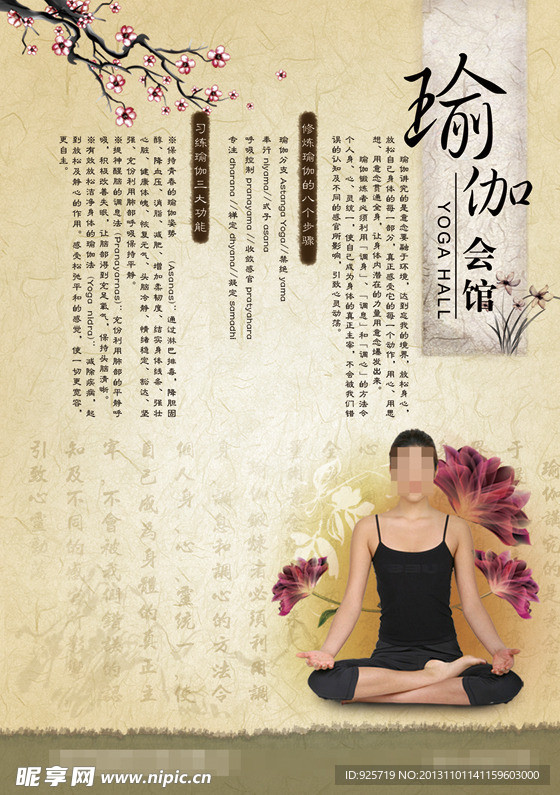 瑜伽
会馆
YOGA HALL
瑜伽讲究的是意念要融于环境，达到忘我的境界，放松身心，
放松自己身体的每一部分，真正感受它的每一个动作，用心、用思
想、用意念贯通全身，让身体内潜在的力量用意念爆发出来。
瑜伽锻炼者必须利用「调身」、「调息」和「调心」的方法令
个人身、心、灵统一，使自己成为身体的真正主宰，不会被我们错
误的认知及不同的感官所影响，引致心灵动荡。
修炼瑜伽的八个步骤
瑜伽分支 Astanga Yoga//禁绝 yama
奉行 niyama//式予 asana
呼吸控制 pranayama //收敛感官 pratyahara
专注 dharana //禅定 dhyana//凝定 samadhi
习练瑜伽三大功能
※保持青春的瑜伽姿势 (Asanas)：通过淋巴排毒，降胆固
醇、降血压、消脂、减肥、增加柔韧度、结实身体线条、强壮
心脏、健康体魄、恢复元气、头脑冷静、情绪稳定、豁达、坚
强，充份利用肺部呼吸保持平静。
※提神醒脑的调息法(Pranayamas)：充份利用肺部的平静呼
吸，积极改善失眠，让脑部得到充足氧气，保持头脑清晰。
※有效放松洁净身体的瑜伽法(Yoga nidra)：减除疾病，起
到放松及静心的作用。感受松弛平和的感觉，使一切更宽容，
更自主。
必须利用調
調息和調心的方法令
個人身、心、靈統一，使
自己成為身體的真正主
牢，不會被我們錯誤的認
知及不同的感官所影
引致心靈動
昵享网 www.nipic.cn
ID:925719 NO:20131101141159603000